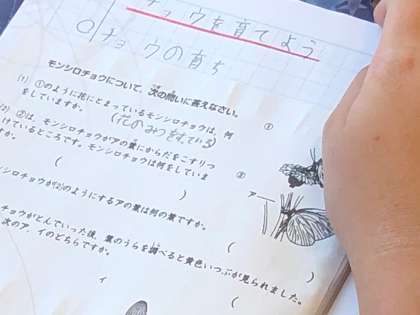 チョウを育てよう
チョウの育ち
モンシロチョウについて、次の問いに答えなさい。
(1) ①のように花にとまっているモンシロチョウは、何
をしていますか。 (花のみつをすっている)
①
(2) ②は、モンシロチョウがアの葉にからだをこすりつ
けているところです。モンシロチョウは何をしていま
すか。
②
( )
ア
シロチョウが(2)のようにするアの葉は何の葉ですか。
( )
チョウがとんでいった後、葉のうらを調べると黄色いつぶが見られました。
次のア、イのどちらですか。
( )
イ